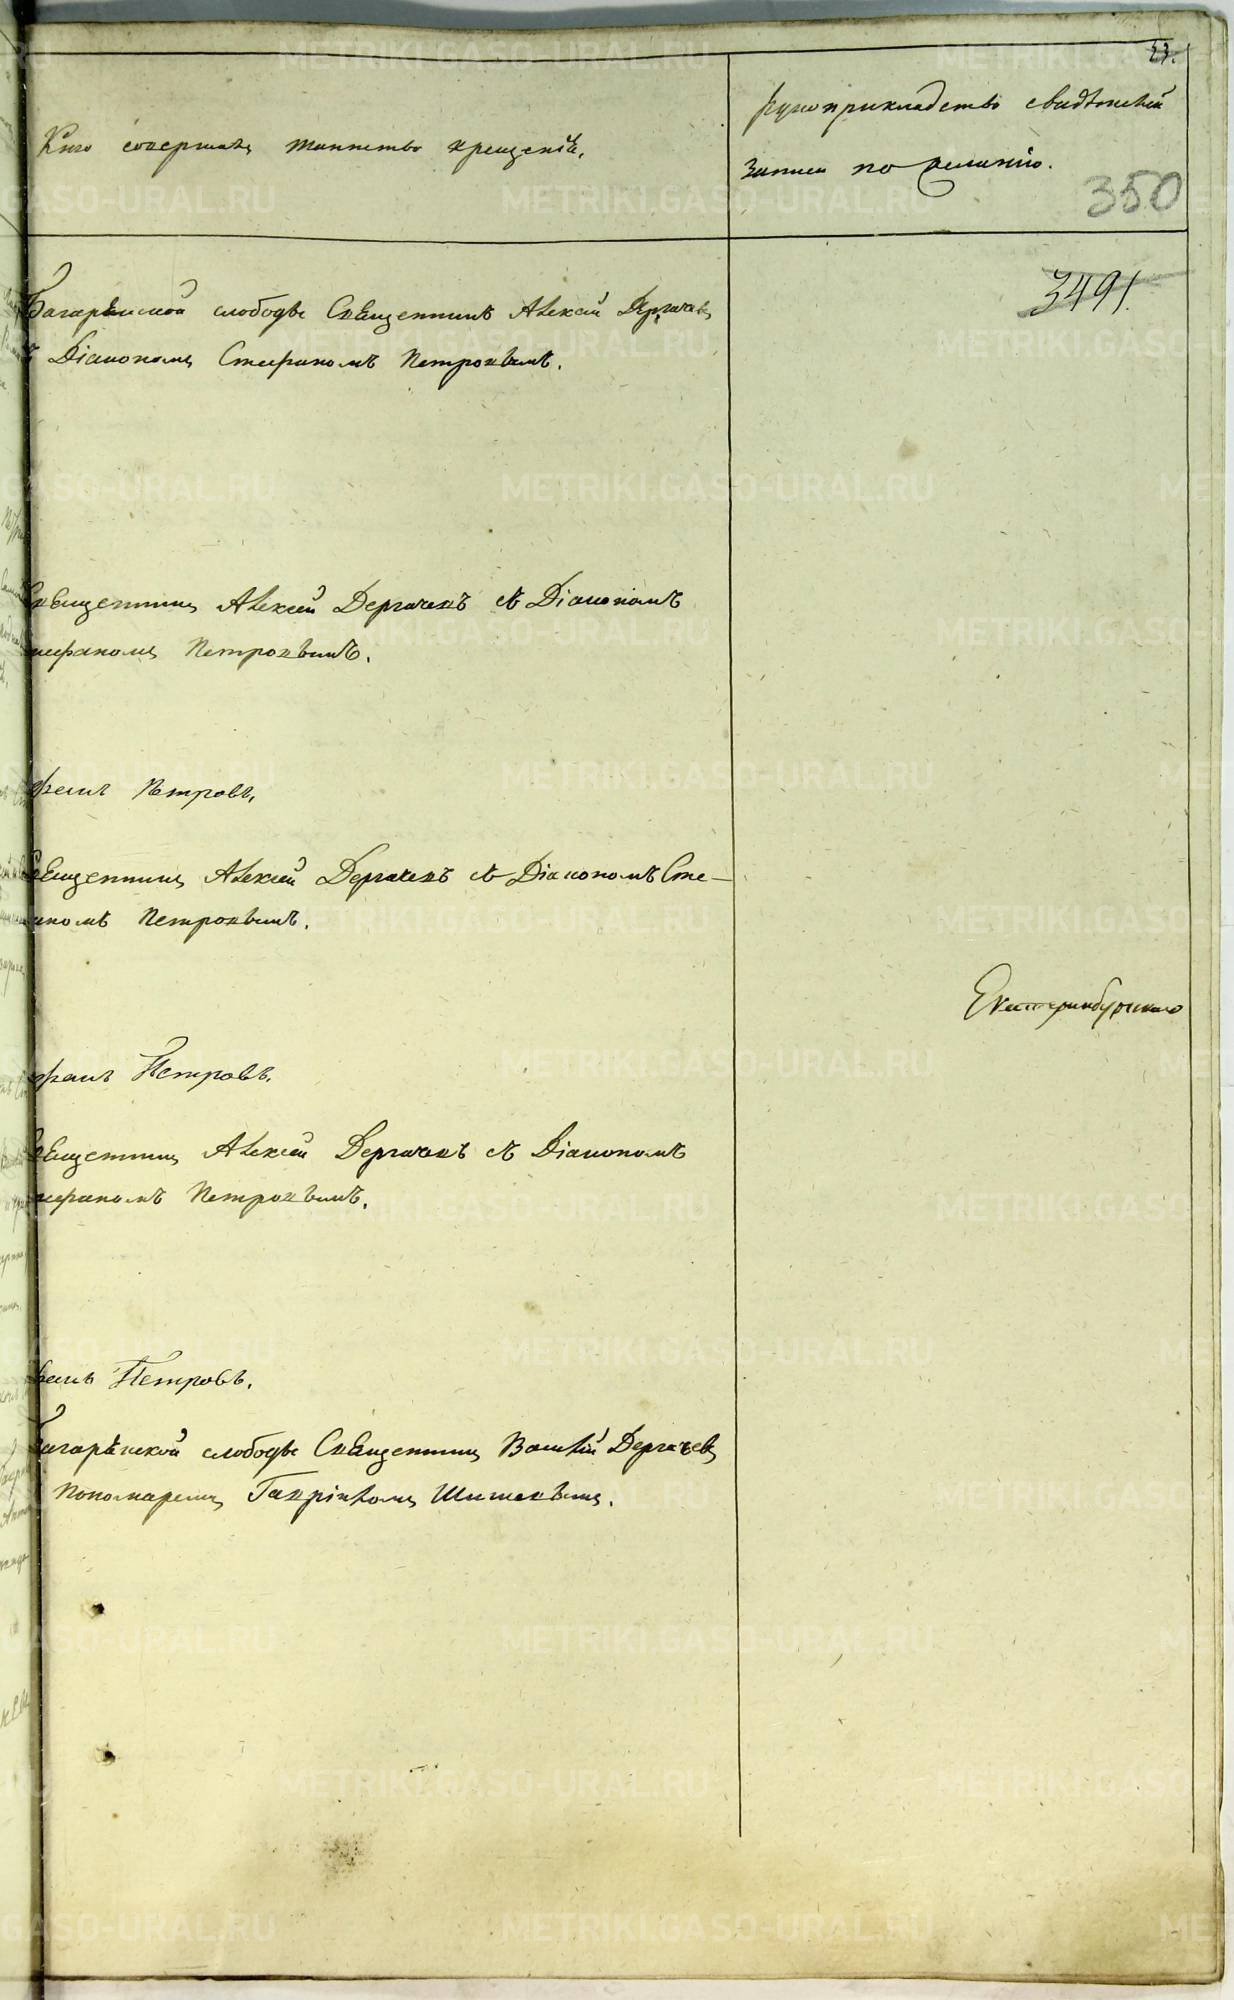 23.
Кто совершалъ таинство крещенія.
Рукоприкладство свидѣтелей
записи по желанію.
350
349
Багаряцкой слободы Священникъ Алексѣй Дергачевъ
Діакономъ Стефаномъ Петровымъ.
Священникъ Алексѣй Дергачевъ съ Діакономъ
Стефаномъ Петровымъ.
Петровъ,
Священникъ Алексѣй Дергачевъ съ Діакономъ Сте-
Петровымъ.
Екатеринбургскаго
Петровъ.
Священникъ Алексѣй Дергачевъ съ Діакономъ
Стефаномъ Петровымъ.
Петровъ.
Багаряцкой слободы Священникъ Василій Дергачевъ
пономаремъ Гавріиломъ Шишевымъ.
METRIKI.GASO-URAL.RU